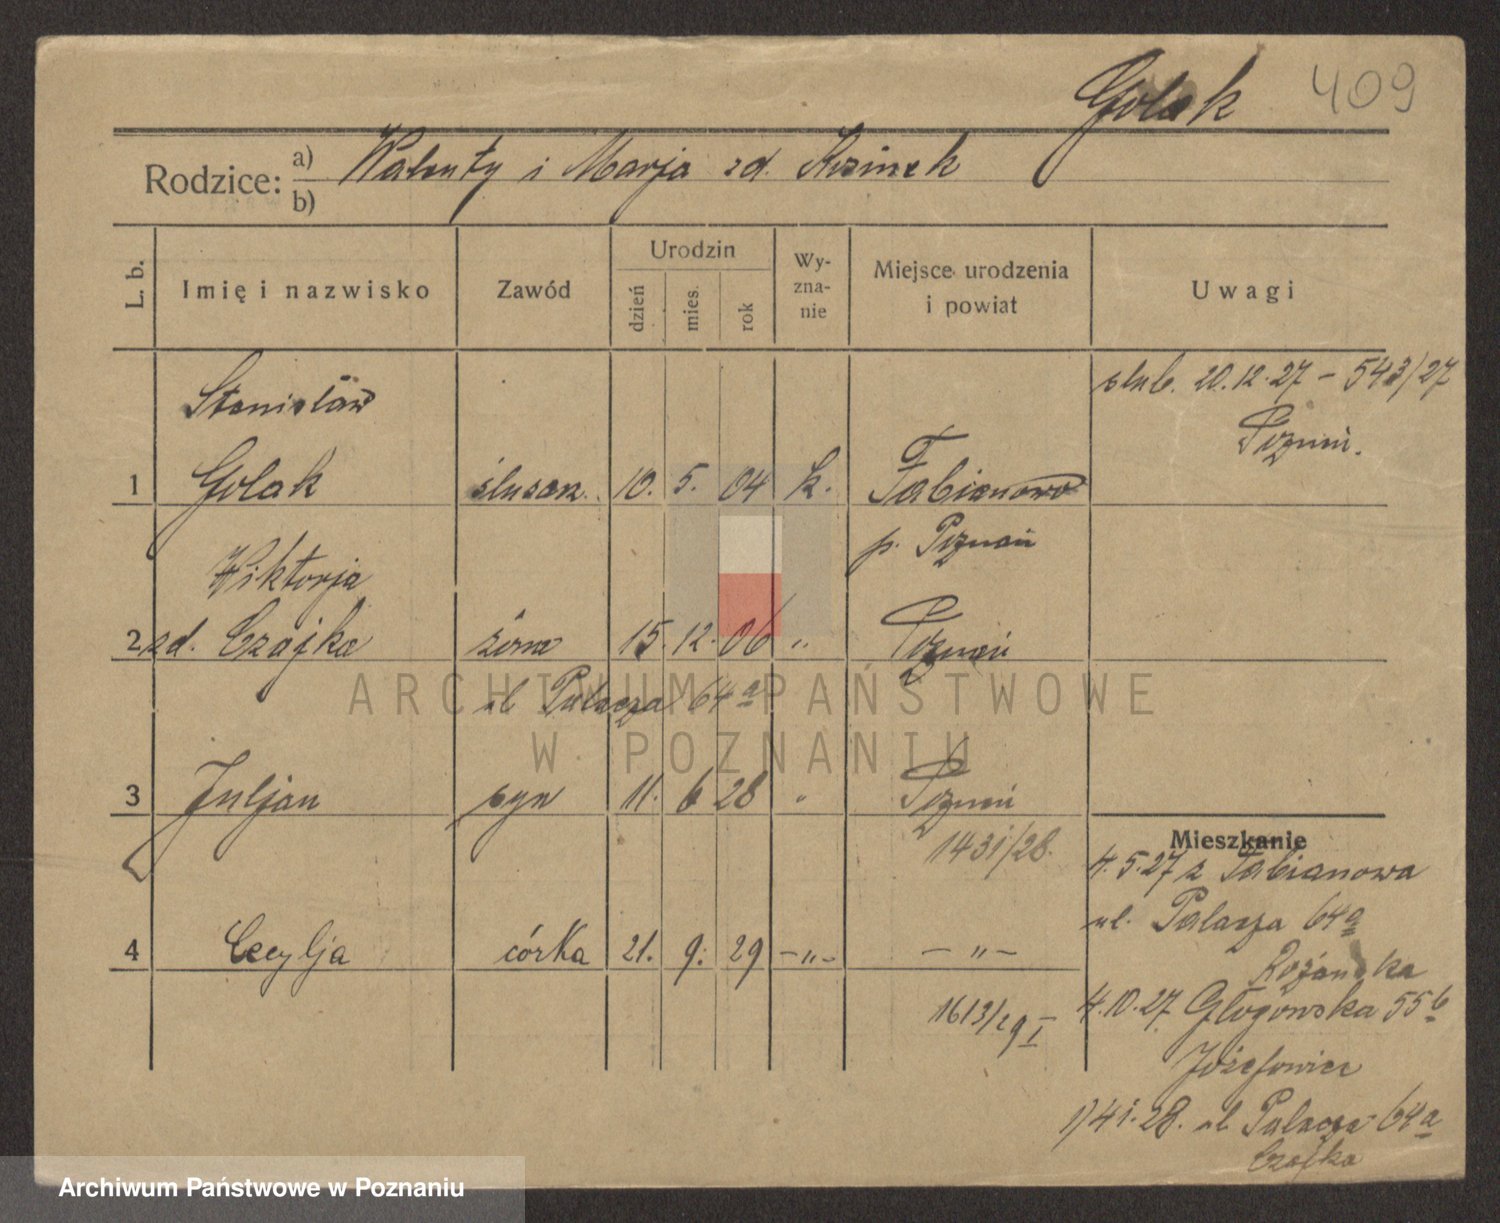 Golak 409
Rodzice: a) Walenty i Marja zd.
b)
L. b. Imię i nazwisko Zawód Urodzin dzień mies. rok Wy-zna-nie Miejsce urodzenia i powiat Uwagi
Stanisław ślub. 20.12.27 – 543/27
Poznań.
1 Golak ślusarz. 10. 5. 04 k. Fabianowo
p. Poznań
Wiktorja
2 zd. Czajka żona 15. 12. 06 „ Poznań
ul Palacza 64a
ARCHIWUM PAŃSTWOWE
W POZNANIU
3 Juljan syn 11. 6 28 „ Poznań
1431/28.
Mieszkanie
4.5.27 z Fabianowa
ul. Palacza 64a
4 Cecylja córka 21. 9. 29 –„– –„–
Różańska
1613/29 I 4.10.27. Głogowska 55b
Józefowicz
1) 4 1.28. ul Palacza 64a
Czajka
Archiwum Państwowe w Poznaniu